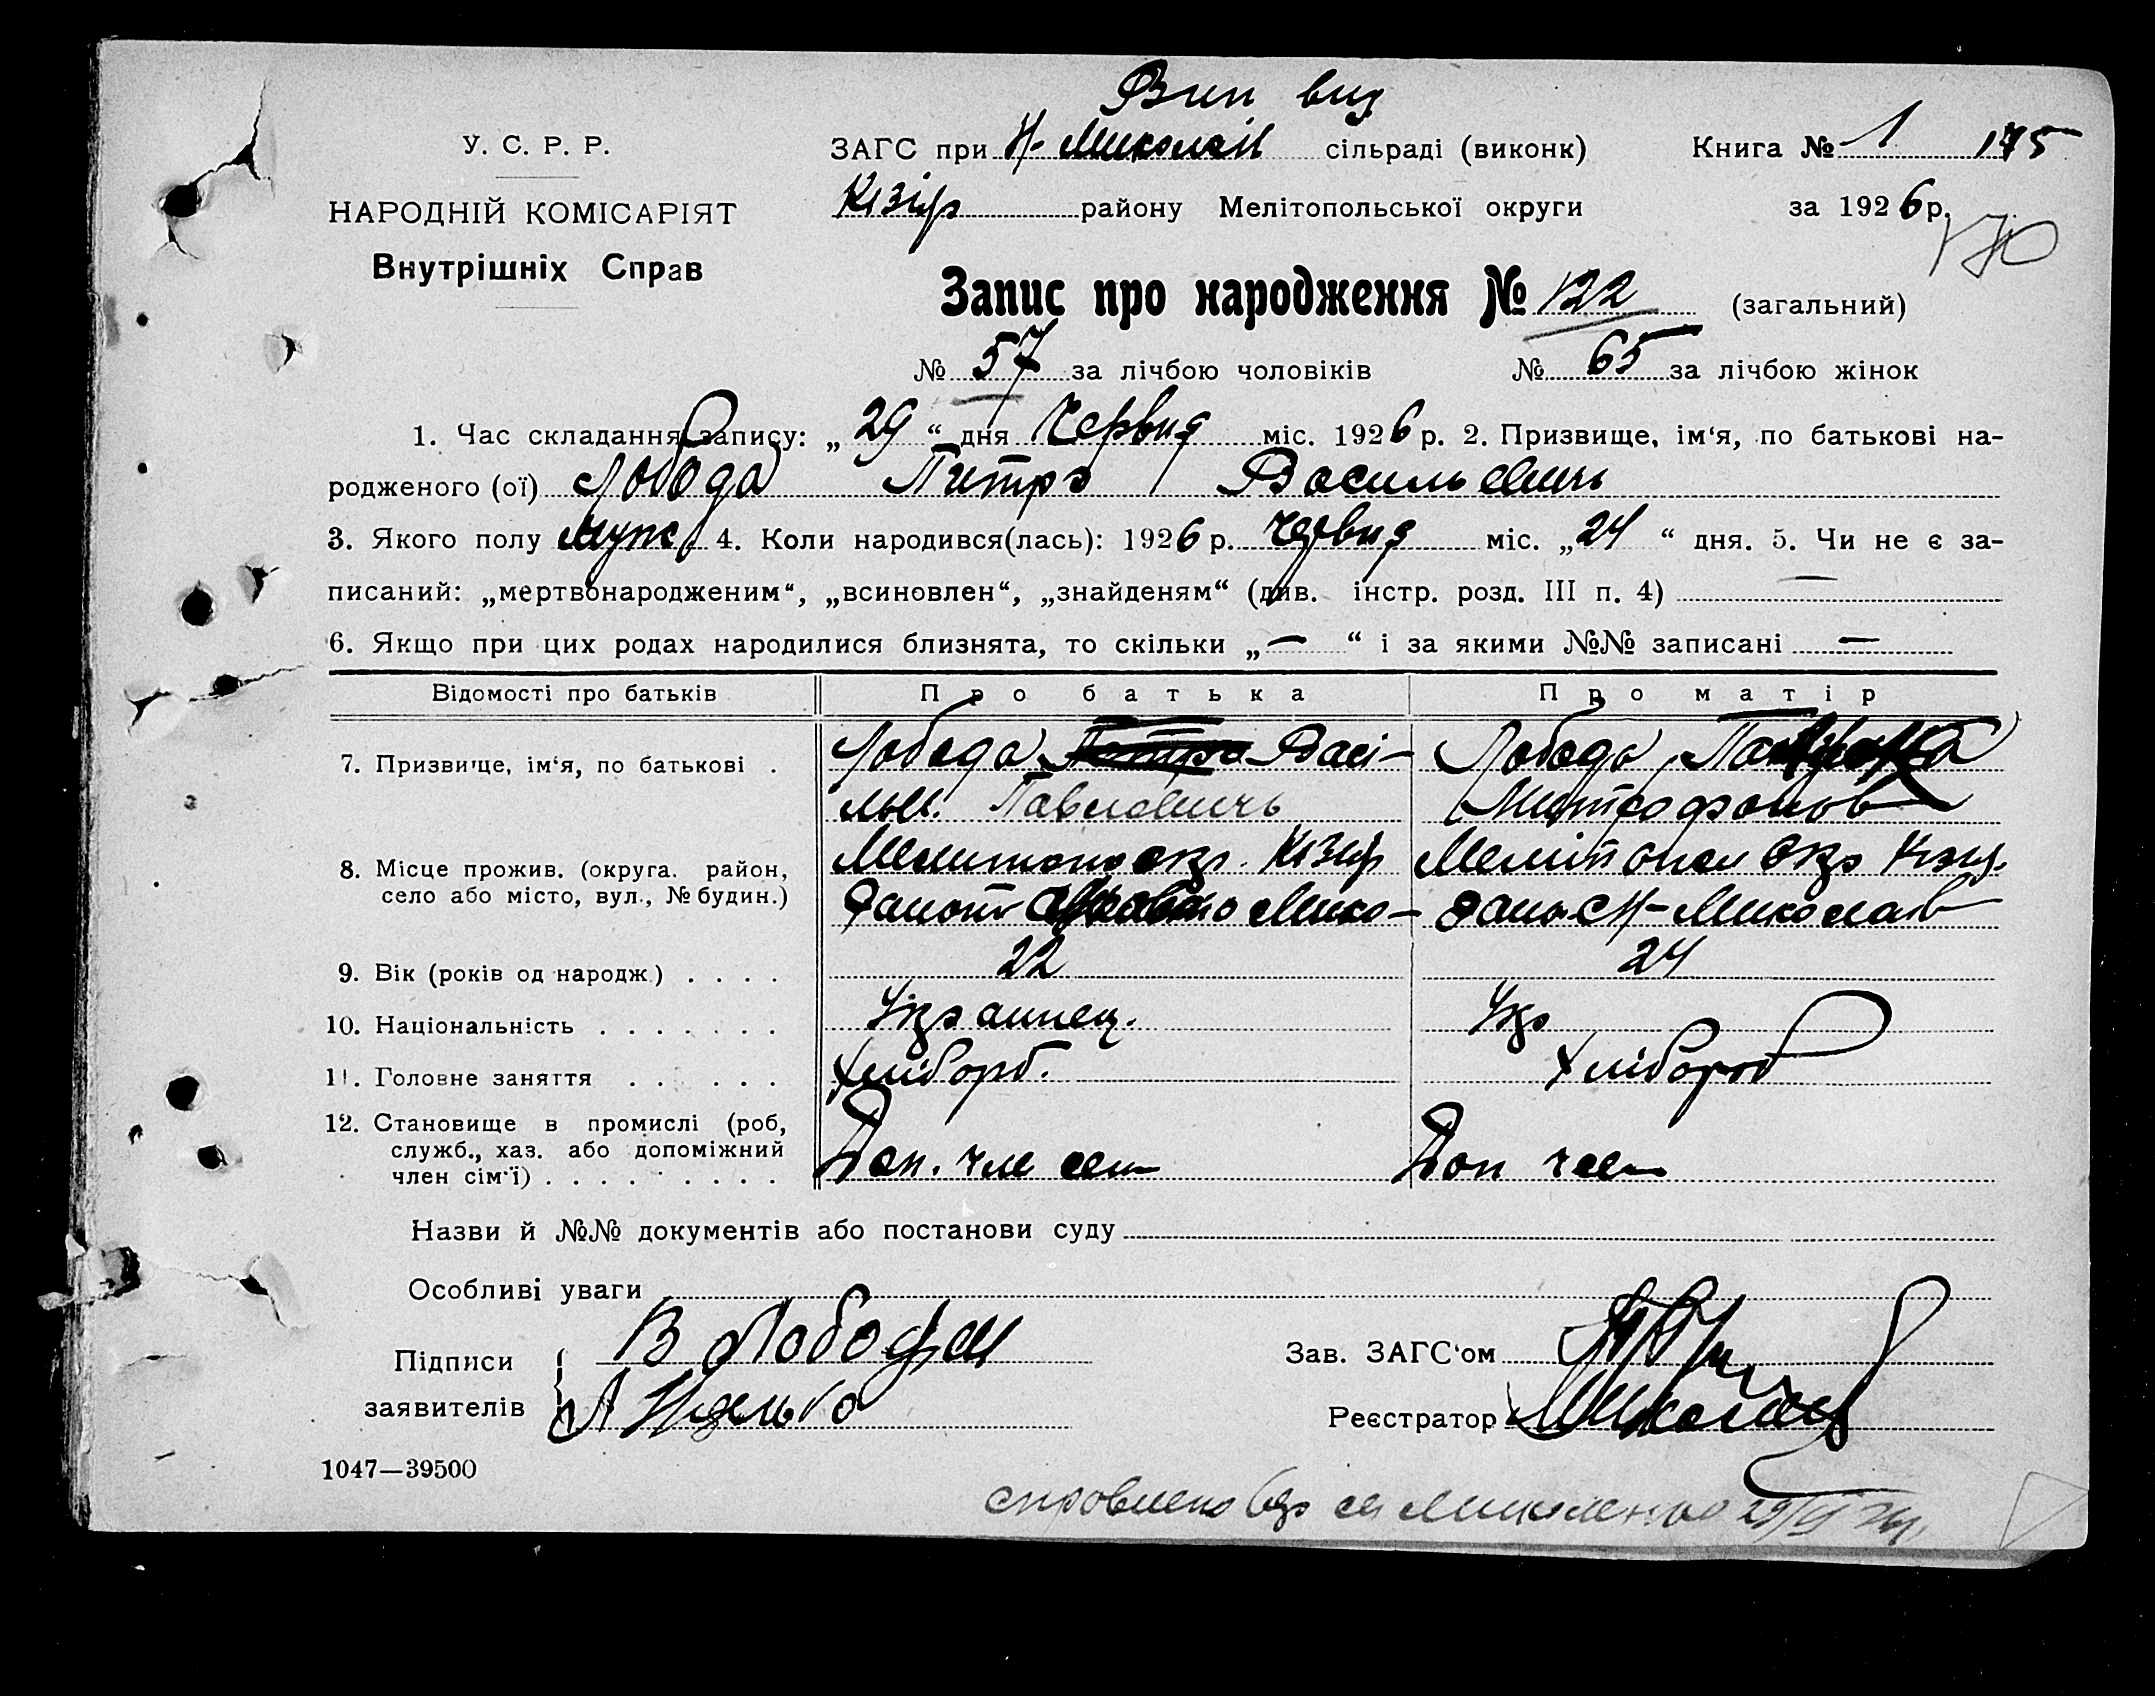 Вип вид
У. С. Р. Р.
ЗАГС при Н-Миколаїв сільраді (виконк)
Книга № 1 175
НАРОДНІЙ КОМІСАРІЯТ
Кізіяр району Мелітопольської округи
за 1926 р.
170
Внутрішніх Справ
Запис про народження № 122 (загальний)
№ 57 за лічбою чоловіків № 65 за лічбою жінок
1. Час складання запису: „29“ дня Червня міс. 1926 р. 2. Призвище, ім‘я, по батькові на-
родженого (ої) Лобода Петро Васильевичь
3. Якого полу муж 4. Коли народився(лась): 1926 р. червня міс. „24“ дня. 5. Чи не є за-
писаний: „мертвонародженим“, „всиновлен“, „знайденям“ (див. інстр. розд. III п. 4) —
6. Якщо при цих родах народилися близнята, то скільки „—“ і за якими №№ записані —
Відомості про батьків Про батька Про матір
7. Призвище, ім‘я, по батькові . Лобода Петро Васі- Лобода
ль. Павловичь Митрофанов
8. Місце прожив. (округа. район, село або місто, вул., № будин.) Мелитопо окр. Кізияр Мелітопол окр Кізи.
Району Мико- Району с Н-Миколаїв
9. Вік (років од народж.) . . . . 22 24
10. Національність . . . . . . . Украинец. Укр
11. Головне заняття . . . . . . Хліборб. Хлібороб
12. Становище в промислі (роб, служб., хаз. або допоміжний член сім‘ї) . . . . . . . . . Доп. чле сем Доп чле
Назви й №№ документів або постанови суду
Особливі уваги
Підписи заявителів В Лобода
Зав. ЗАГС‘ом
Реєстратор
1047—39500